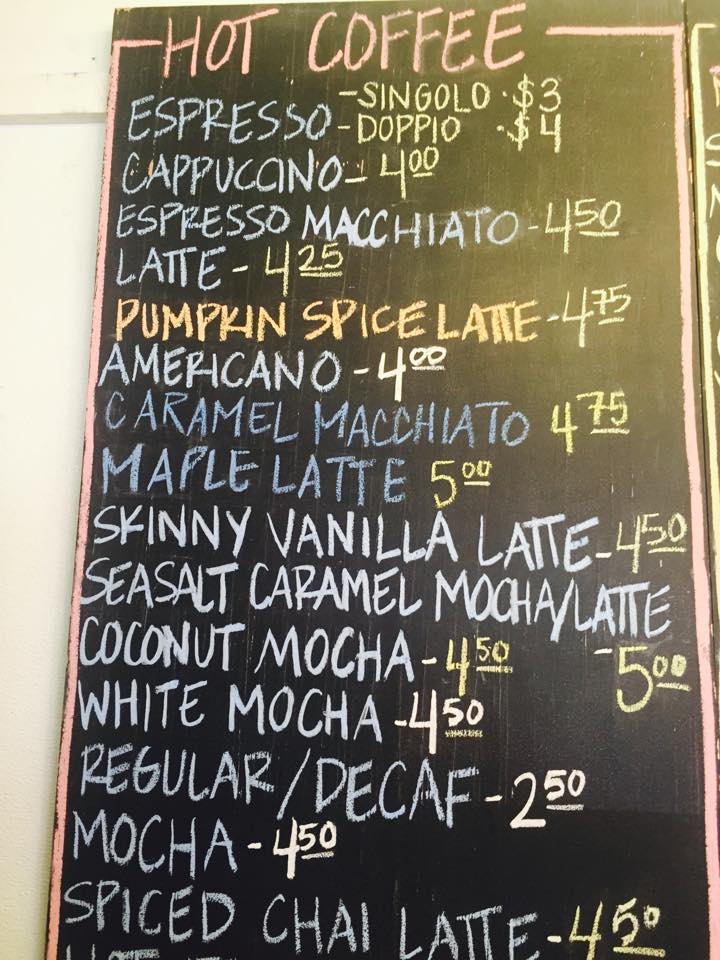 HOT COFFEE
ESPRESSO -SINGOLO · $3
-DOPPIO · $4
CAPPUCCINO - 4.00
ESPRESSO MACCHIATO - 450
LATTE - 425
PUMPKIN SPICE LATTE - 475
AMERICANO - 400
CARAMEL MACCHIATO 475
MAPLE LATTE 500
SKINNY VANILLA LATTE - 450
SEASALT CARAMEL MOCHA/LATTE
COCONUT MOCHA - 450 - 500
WHITE MOCHA - 450
REGULAR / DECAF - 250
MOCHA - 450
SPICED CHAI LATTE - 450